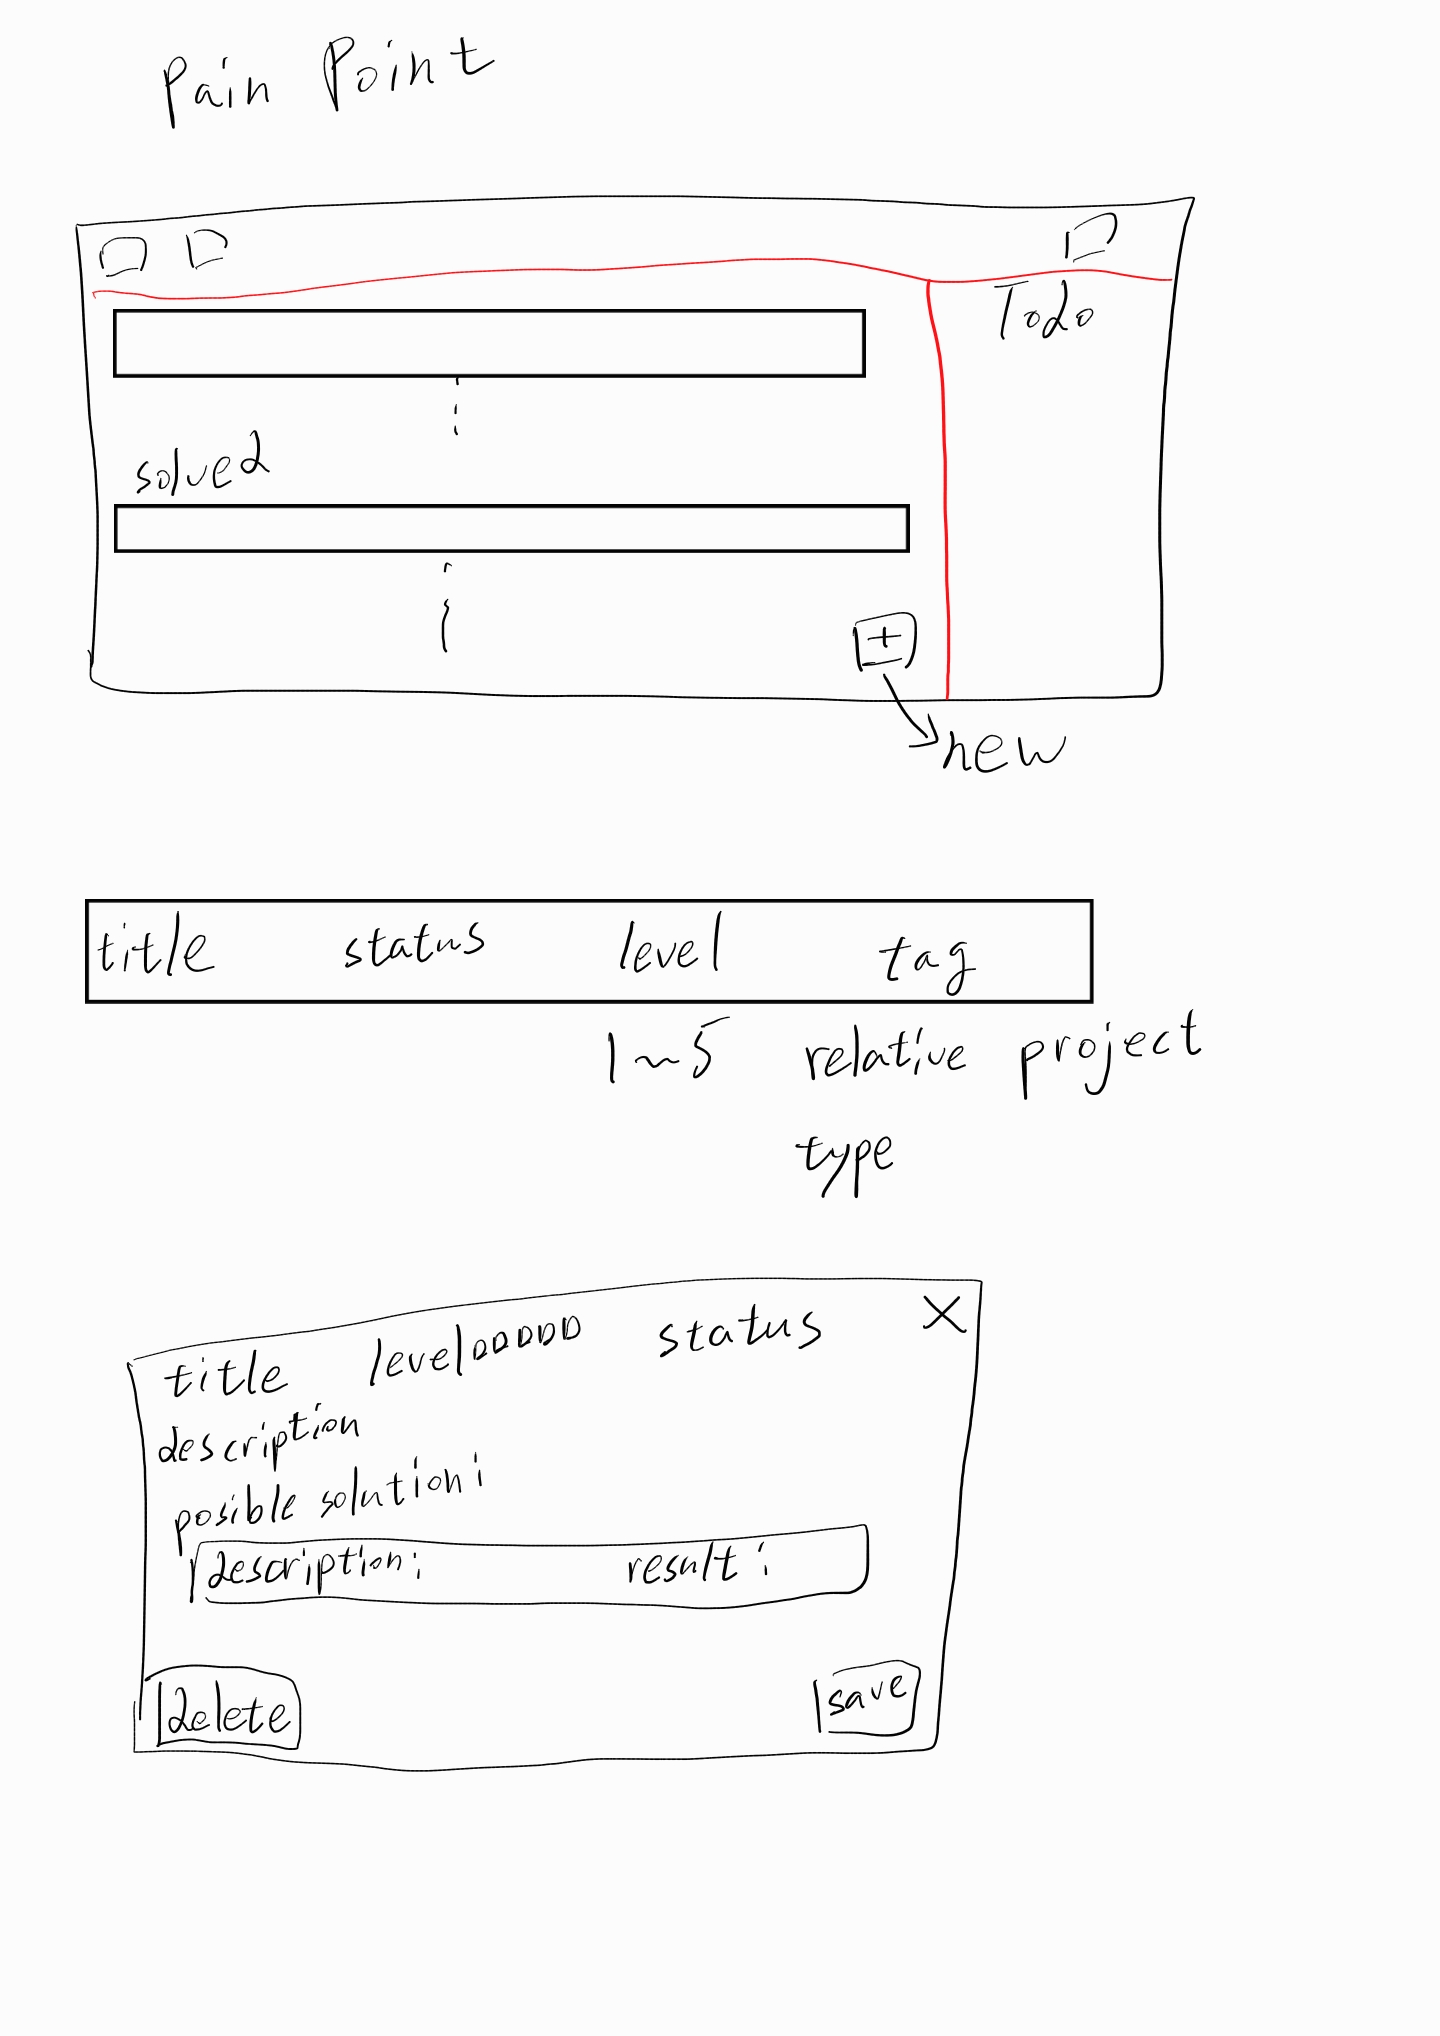 Pain Point
Todo
solved
+
new
title status level tag
1~5 relative project
type
title level status X
description
posible solution:
description: result:
Delete save